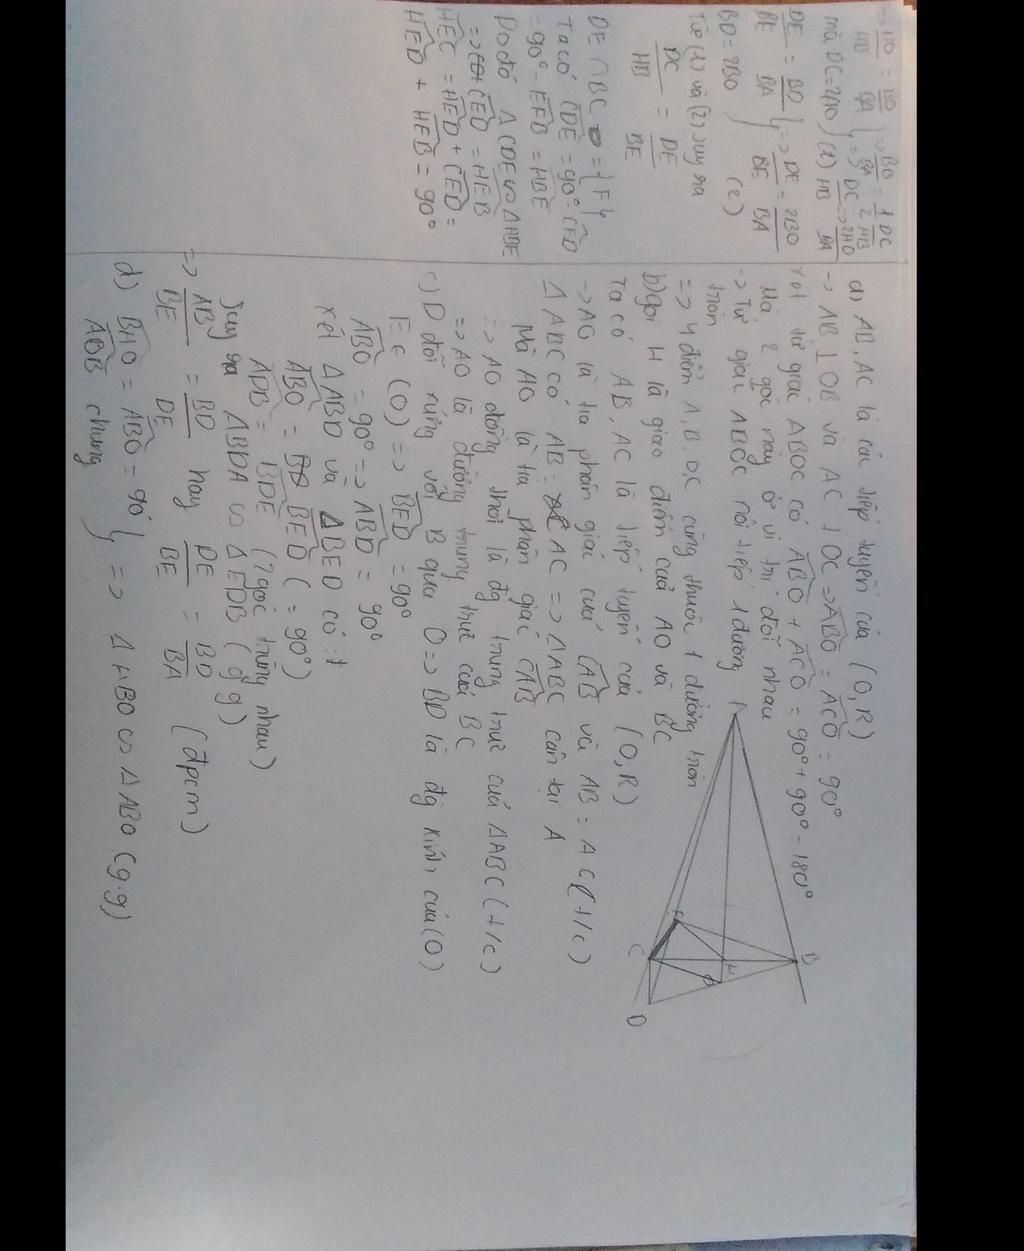 a) AB, AC là các tiếp tuyến của (O,R)
→ AB ⊥ OB và AC ⊥ OC ⇒ ABO = ACO = 90°
Xét tứ giác ABOC có ABO + ACO = 90° + 90° = 180°
Mà 2 góc này ở vị trí đối nhau
→ Tứ giác ABOC nội tiếp 1 đường tròn
⇒ 4 điểm A, B, O, C cùng thuộc 1 đường tròn
b) gọi H là giao điểm của AO và BC
Ta có AB, AC là tiếp tuyến của (O,R)
→ AO là tia phân giác của CAB và AB = AC (t/c)
Δ ABC có AB = AC ⇒ Δ ABC cân tại A
Mà AO là tia phân giác CAB
⇒ AO đồng thời là đg trung trực của ΔABC (t/c)
⇒ AO là đường trung trực của BC
c) D đối xứng với B qua O ⇒ BD là đg kính của (O)
E ∈ (O) ⇒ BED = 90°
ABO = 90° ⇒ ABD = 90°
Xét Δ ABD và Δ BED có:
ABO = BED (= 90°)
ADB = BDE (2 góc trùng nhau)
Suy ra Δ BDA ∽ Δ EDB (g g)
⇒ AB/BE = BD/DE hay DE/BE = BD/BA (đpcm)
d) BHO = ABO = 90°
AOB chung } ⇒ Δ HBO ∽ Δ ABO (g.g)
⇒ HO/HB = BO/BA
mà DC = 2HO (1)
DE/BE = BD/BA
BD = 2BO } ⇒ DE/BE = 2BO/BA (2)
Từ (1) và (2) suy ra
DC/HB = DE/BE
DE ∩ BC = {F}
Ta có CDE = 90° - CFD
= 90° - EFB = HBE
Do đó Δ CDE ∽ Δ HBE
⇒ CED = HEB
HEC = HED + CED =
HED + HEB = 90°
A
B
C
D
H